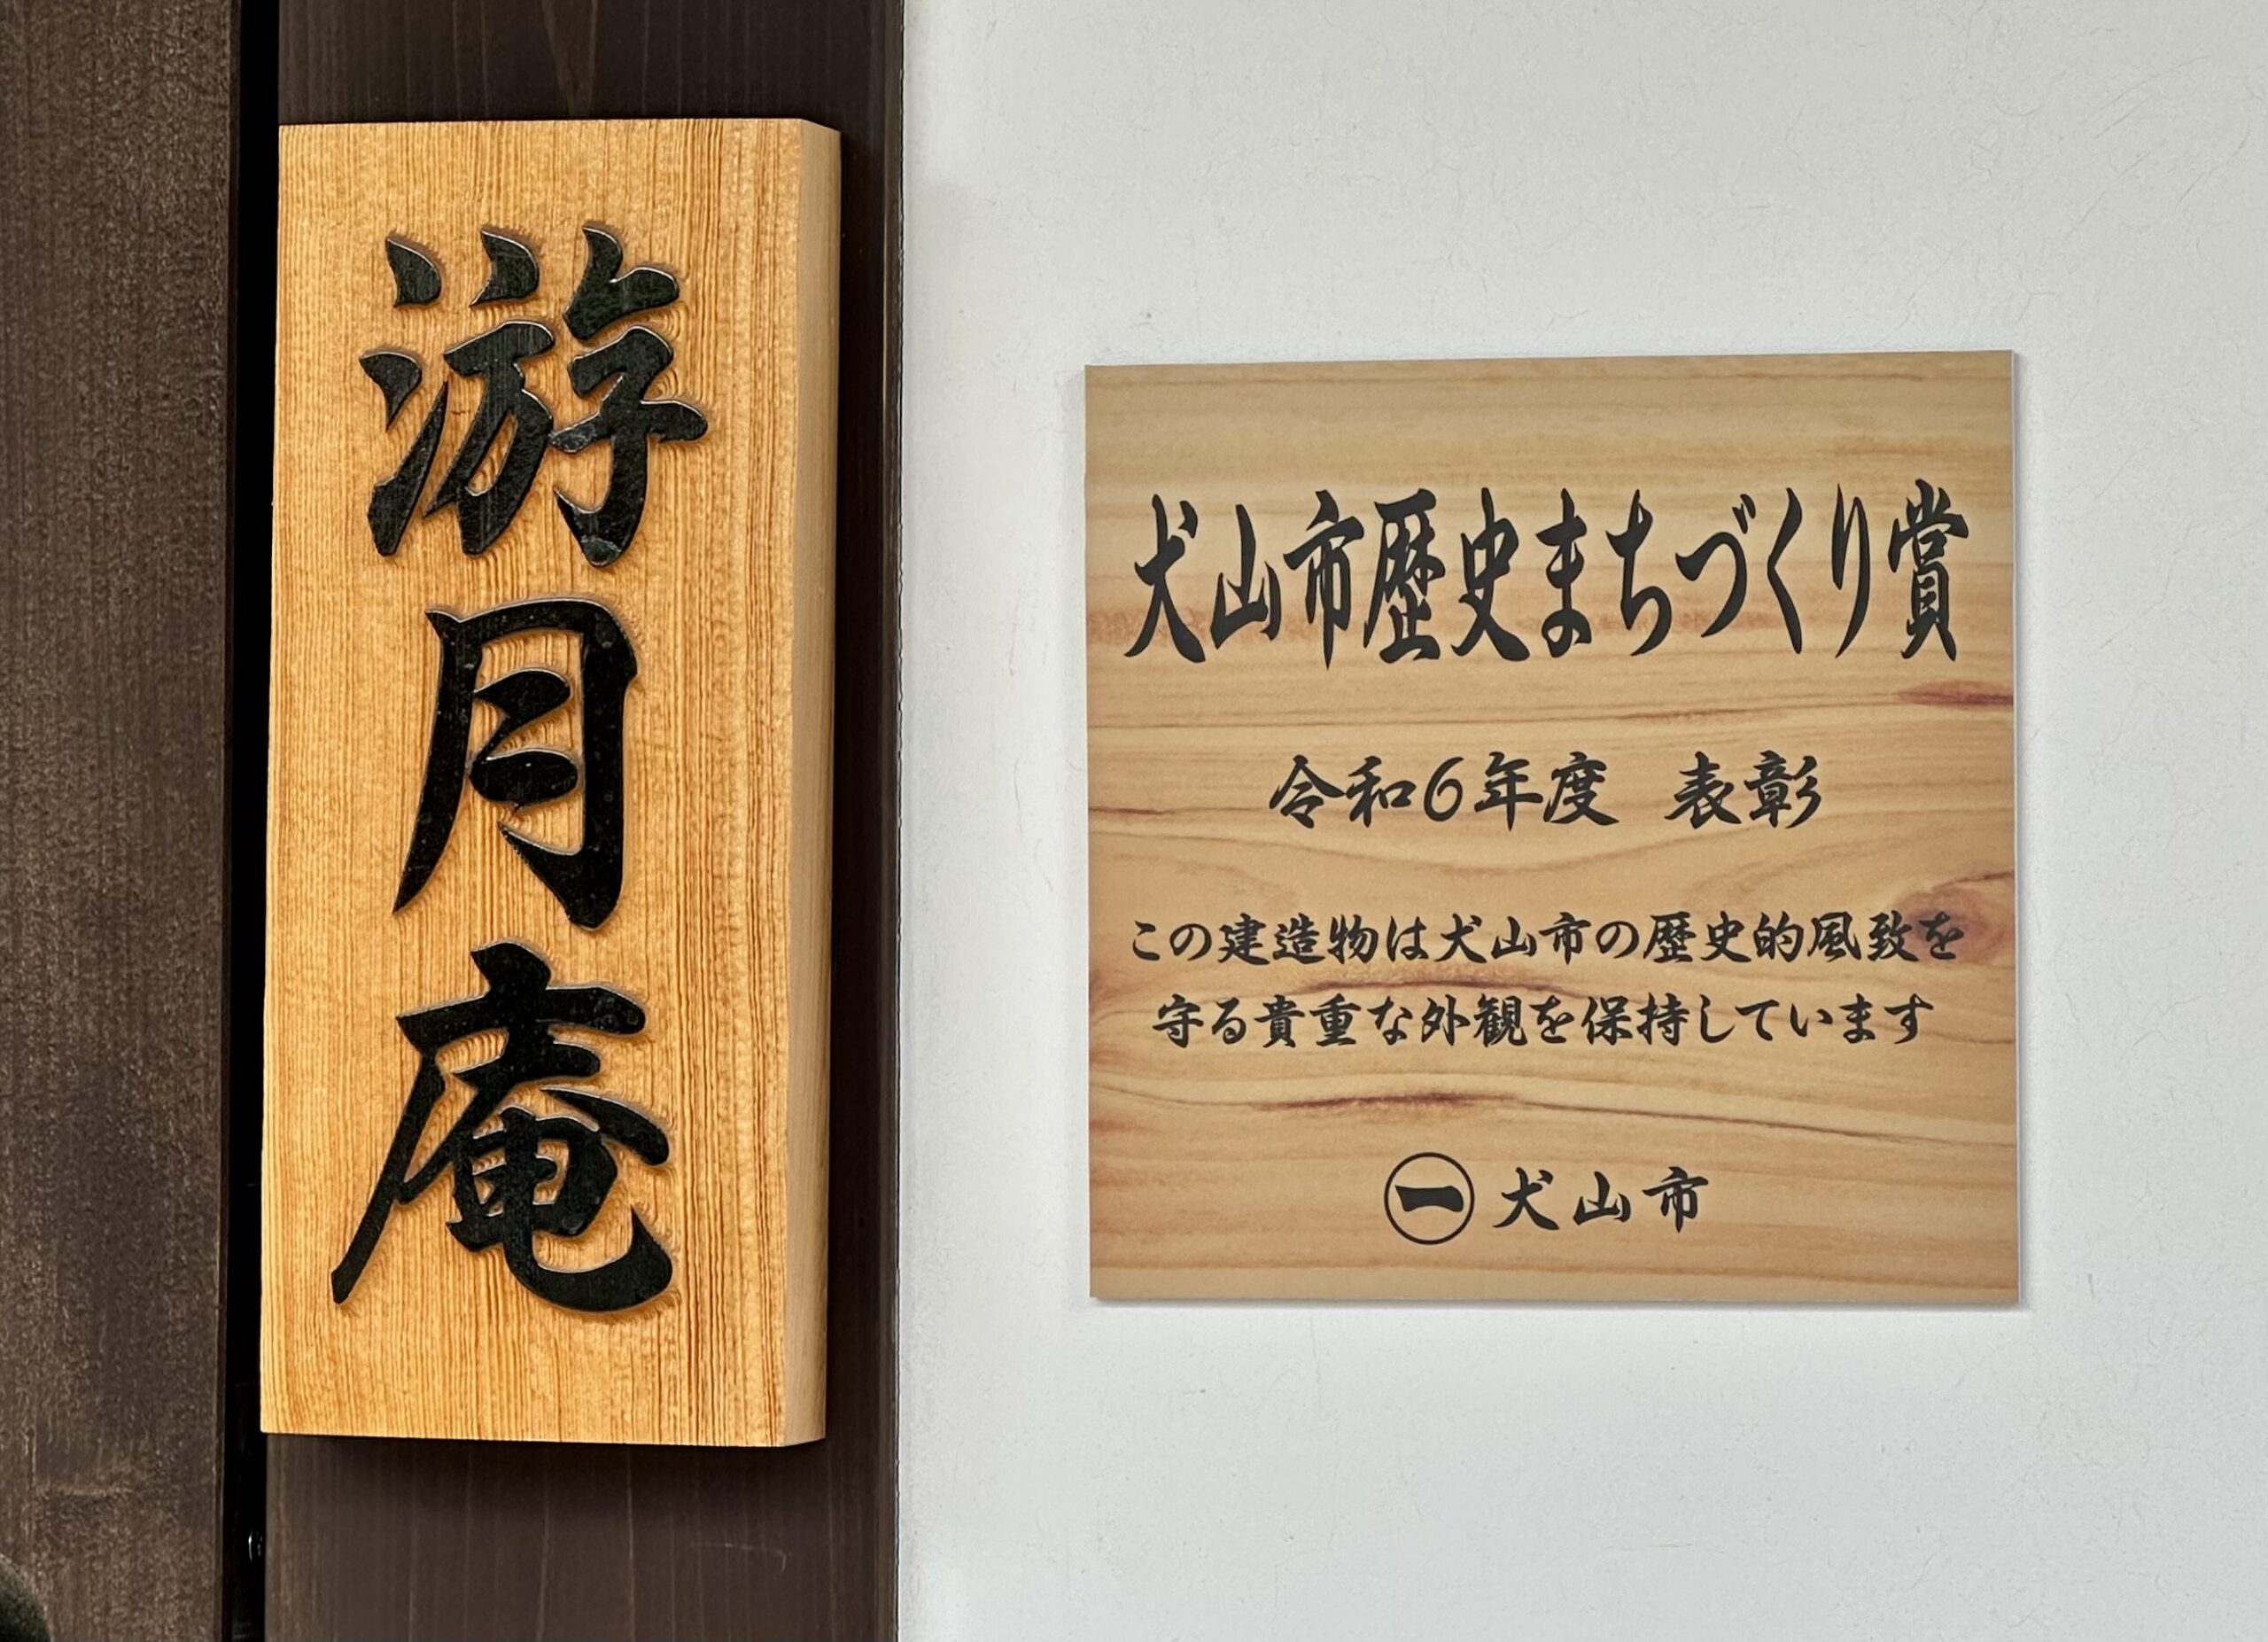 游月庵
犬山市歴史まちづくり賞
令和6年度 表彰
この建造物は犬山市の歴史的風致を
守る貴重な外観を保持しています
一 犬山市